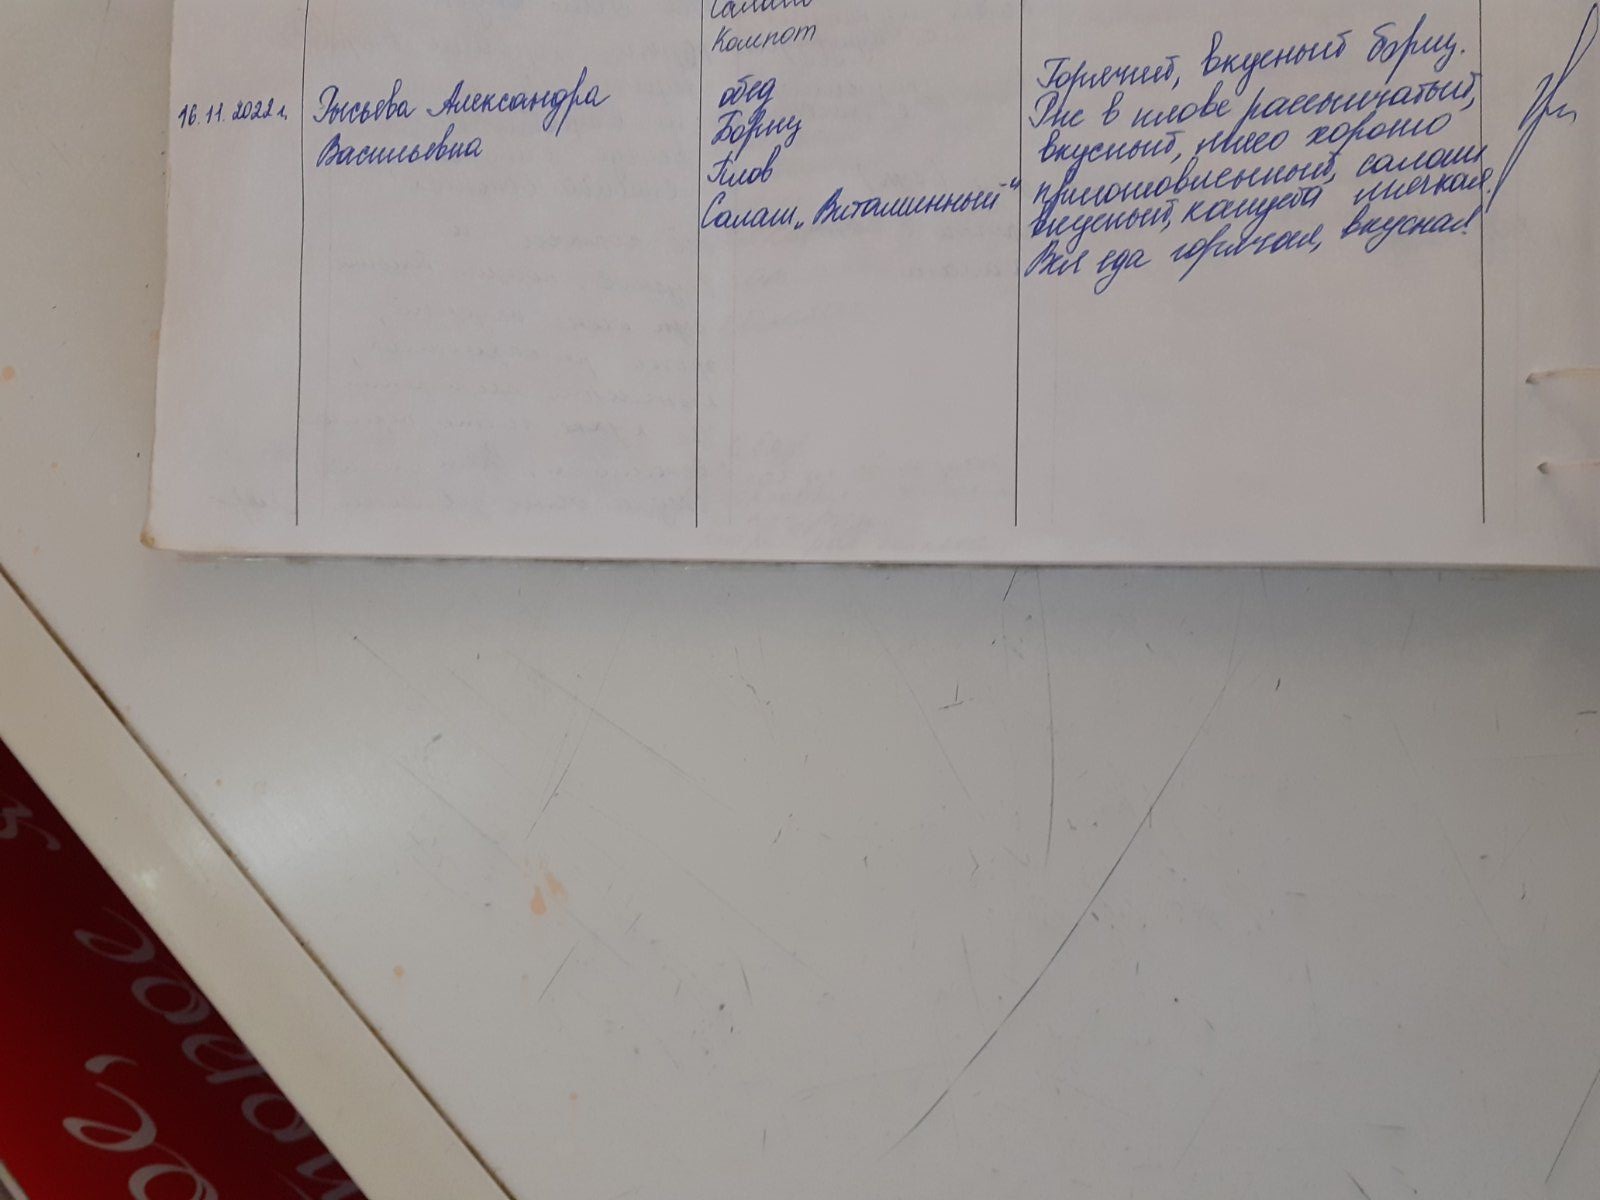 Компот
16.11.2022г.
Рысьева Александра
Васильевна
обед
Борщ
Плов
Салат „Витаминный“
Горячий, вкусный борщ.
Рис в плове рассыпчатый,
вкусный, мясо хорошо
приготовленный, салат
вкусный, капуста мягкая.
Вся еда горячая, вкусная!